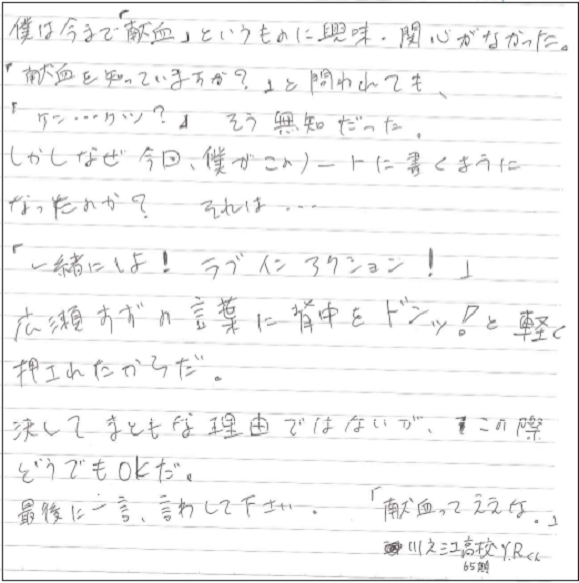 僕は今まで「献血」というものに興味・関心がなかった。
「献血を知っていますか？」と問われても、
「ケン…ケツ？」 そう無知だった。
しかしなぜ今回、僕がこのノートに書くように
なったのか？ それは…
「一緒にしよ！ ラブインアクション！」
広瀬すずの言葉に背中をドンッ！と軽く
押されたからだ。
決してまともな理由ではないが、この際
どうでもOKだ。
最後に一言、言わして下さい。 「献血ってええな。」
川之江高校Y.Rくん
65期